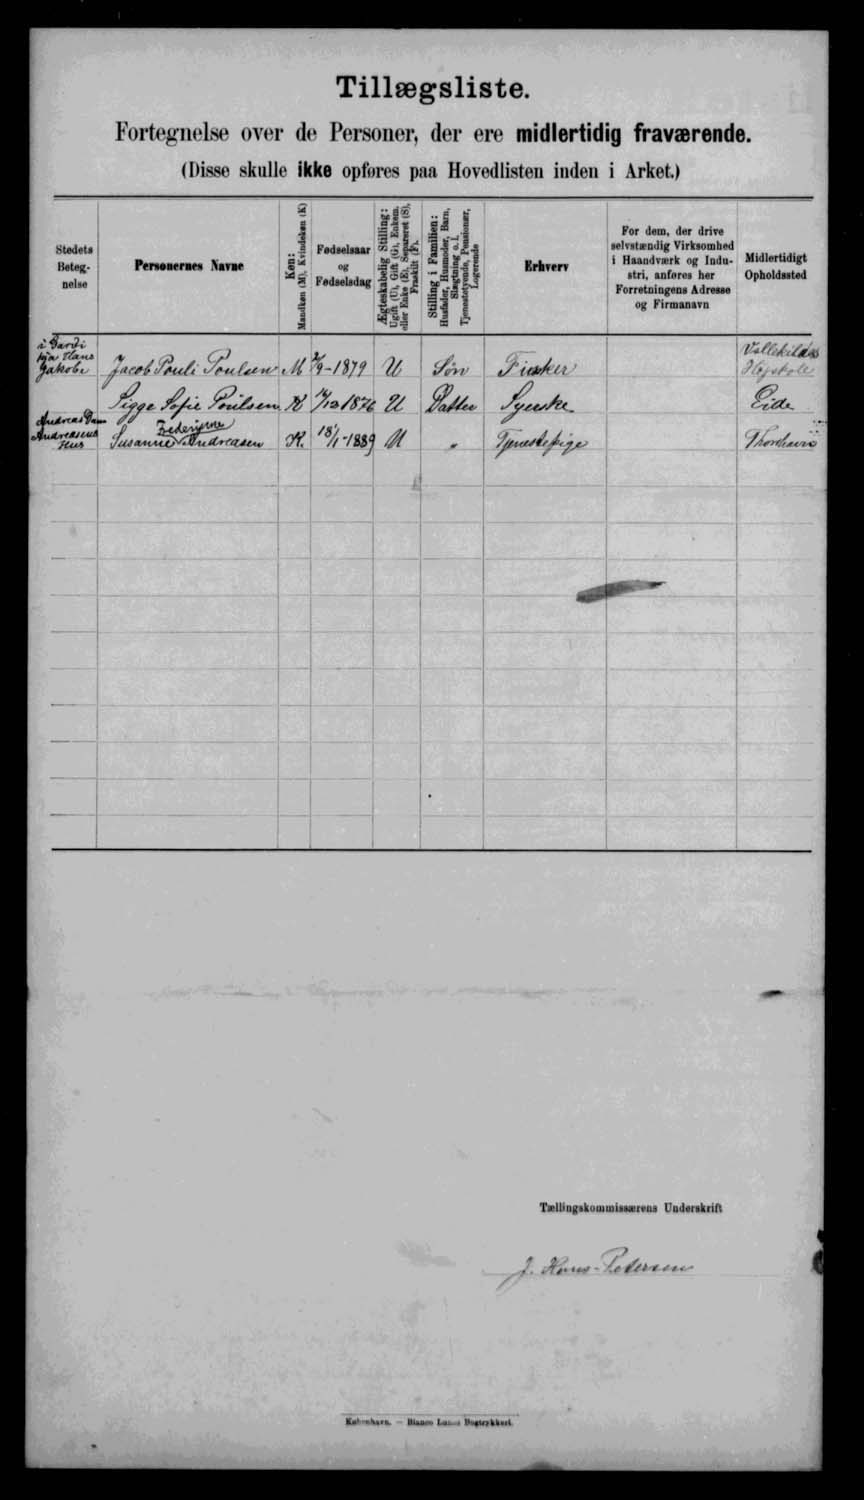 Tillægsliste.
Fortegnelse over de Personer, der ere midlertidig fraværende.
(Disse skulle ikke opføres paa Hovedlisten inden i Arket.)
Stedets Betegnelse
Personernes Navne
Køn:
Mandkøn (M), Kvindekøn (K)
Fødselsaar
og
Fødselsdag
Ægteskabelig Stilling:
Ugift (U), Gift (G), Enkem.
eller Enke (E), Separeret (S),
Fraskilt (F).
Stilling i Familien:
Husfader, Husmoder, Barn,
Slægtning o. l.
Tjenestetyende, Pensionær,
Logerende
Erhverv
For dem, der drive
selvstændig Virksomhed
i Haandværk og Indu-
stri, anføres her
Forretningens Adresse
og Firmanavn
Midlertidigt
Opholdssted
hja Hans
Jakobs Jacob Pouli Poulsen M 2/9-1879 U Søn Fisker Vallekilde Højskole
Sigge Sofie Poulsen K 1876 U Datter Syerske Eide
Andreas
Andreasens
Hus Susanne Frederikke Andreasen K. 18/1-1889 U " Tjenestepige Thorshavn
Tællingskommissærens Underskrift
J. Hans-Petersen
København. — Bianco Lunos Bogtrykkeri.